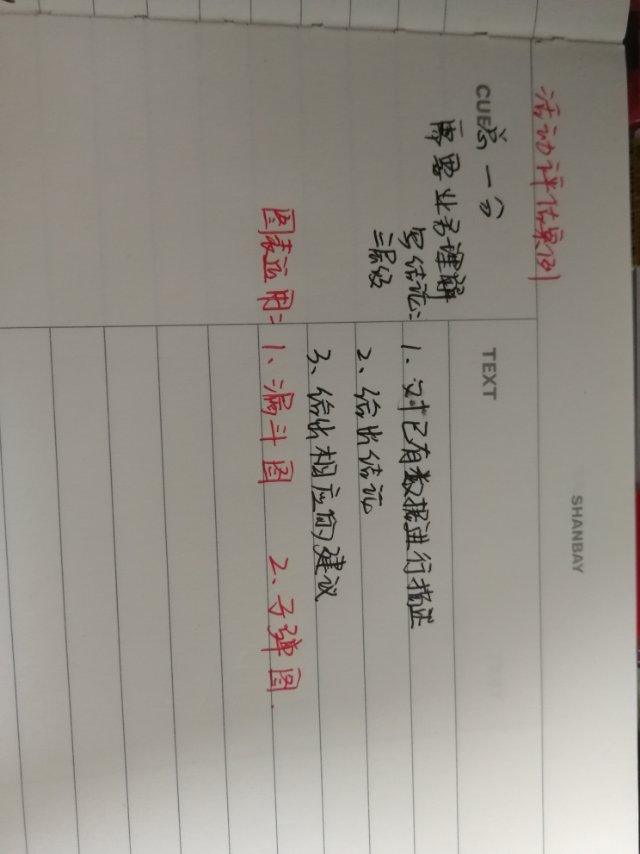 SHANBAY
活动评估案例
CUE
TEXT
总一分
需要业务理解
写结论: 1. 对已有数据进行描述
三层级
2、给出结论
3、给出相应的建议
图表运用: 1、漏斗图 2、子弹图.